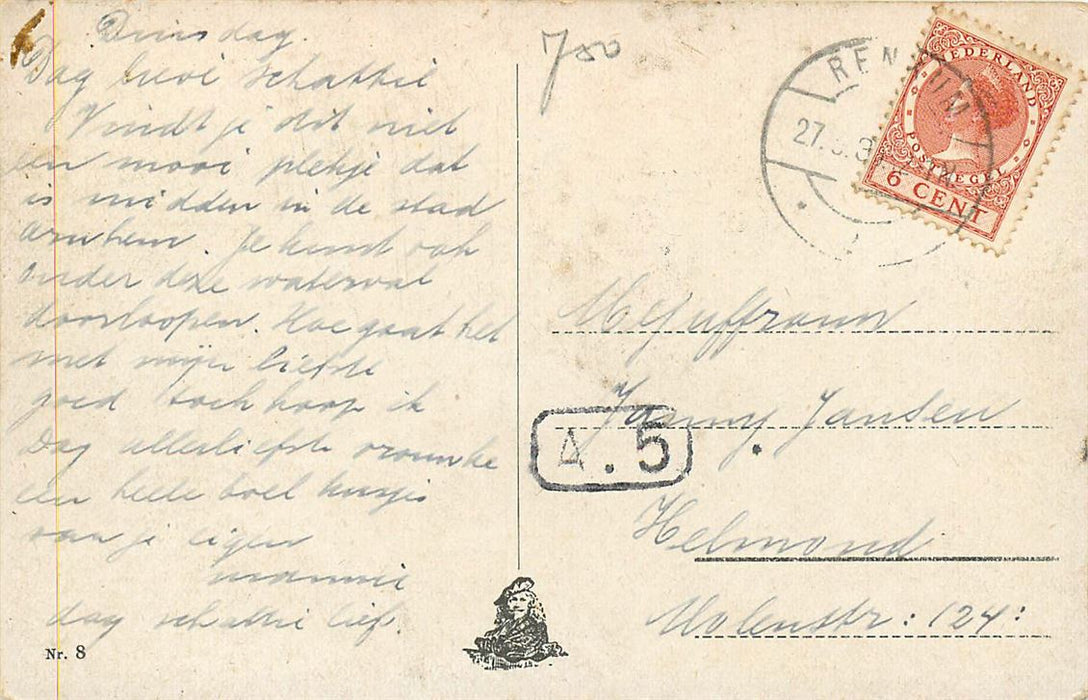 Dinsdag.
Dag lieve schattie
Vindt je dit niet
een mooi plekje dat
is midden in de stad
Arnhem. Je kunt ook
onder deze waterval
doorloopen. Hoe gaat het
met mijn liefste
goed toch hoop ik
Dag allerliefste vrouwke
een heele boel kusjes
van je eigen
mannie
dag schattie lief.
Nr. 8
780
REN UM
27.
NEDERLAND
POSTZEGEL
6 CENT
Mejuffrouw
Janny Jansen
A.5
Helmond
Molenstr: 124: